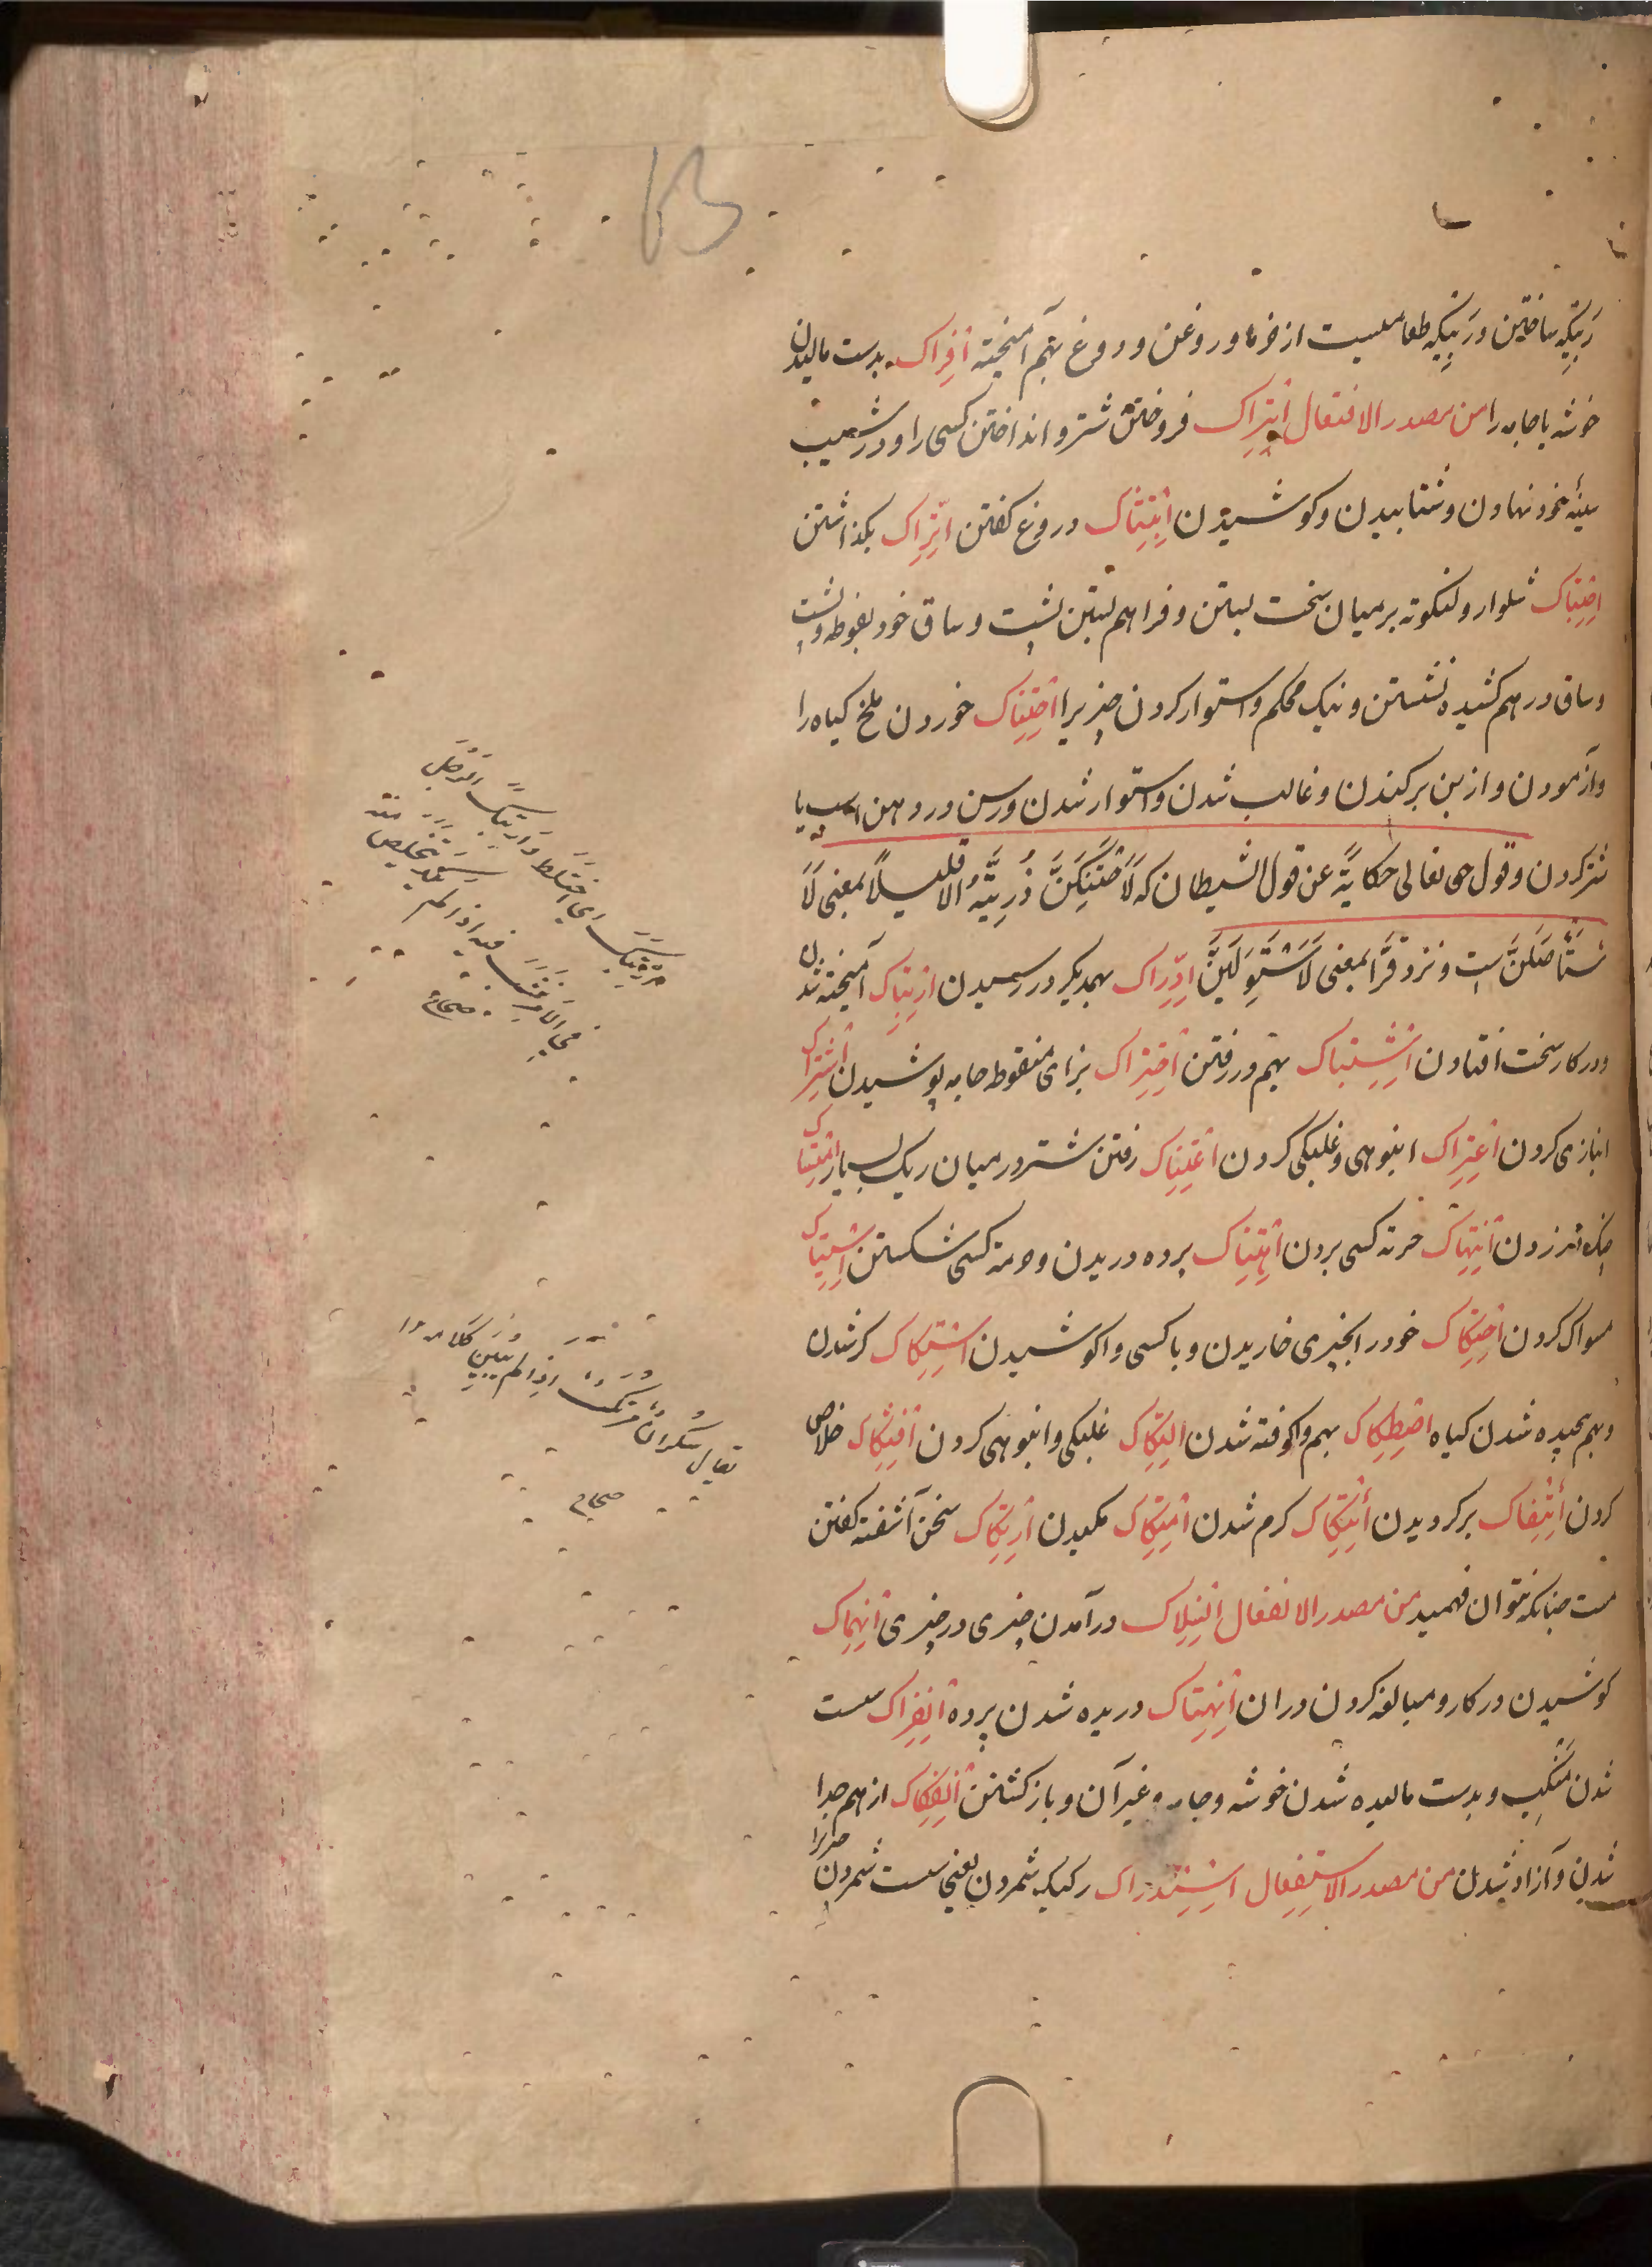 رَبیکه ساختن و رَبیکه طعامیست از خرما و روغن و دوغ بهم آمیخته اِفراک بدست مالیدن
خوشه یا جامه را من مصدر الافتعال اِبتراک فروختن شتر و انداختن کسی را و در شیب
سینهٔ خود نهادن و شتابیدن و کوشیدن اِبتشاک دروغ گفتن اِتّراک بگذاشتن
اِحتباک شلوار و لنگوته بر میان سخت بستن و فراهم بستن پشت و ساق خود بفوطه و پشت
و ساق در هم کشیده نشستن و نیک محکم و استوار کردن چیزیرا اِحتناک خوردن ملخ گیاه را
و آزمودن و از بن برکندن و غالب شدن و استوار شدن و رسن در دهن اسپ یا
شتر کردن و قول حق تعالی حکایةً عن قول الشیطان که لَاَحْتَنِکَنَّ ذُرِّیَّتَهُ اِلا قلیلاً بمعنی لَاَ
سْتَأصِلَنَّ ست و نزد فَرّا بمعنی لَاَسْتَوْلِیَنَّ اِدّراک بهمدیگر در رسیدن اِرتباک آمیخته شدن
و در کار سخت افتادن اِشتباک بهم در رفتن اِحتزاک بزای منقوطه جامه پوشیدن اِشتراک
انبازی کردن اِعتراک انبوهی و غلبگی کردن اِعتناک رفتن شتر در میان ریک بسیار
زدن اِنتهاک حرمة کسی بردن اِهتتاک پرده دریدن و حرمة کسی شکستن اِستیاک
مسواک کردن اِحتکاک خود را بچیزی خاریدن و با کسی واکوشیدن اِستکاک کر شدن
و بهم پیچیده شدن گیاه اِصطکاک بهم واکوفته شدن اِلتکاک غلبگی و انبوهی کردن اِفتکاک خلاص
کردن اِئتفاک برگردیدن اِئتکاک گرم شدن اِمتکاک مکیدن اِرتکاک سخن آشفته گفتن
مست چنانکه نتوان فهمید من مصدر الانفعال اِنسلاک درآمدن چیزی در چیزی اِنهماک
کوشیدن در کار و مبالغه کردن در آن اِنهتاک دریده شدن پرده اِنفراک سست
شدن مَنکِب و بدست مالیده شدن خوشه و جامه و غیر آن و باز گشتن اِنفکاک از هم جدا
شدن و آزاد شدن من مصدر الاستفعال اِستدراک رکیک شمردن یعنی سست شمردن چیزیرا
ای اختلط و ارتبک الرجل
فی الامر نشب فیه اذا لم یکد یتخلص منه
صحاح
یقال سکران مرتکّ اذا لم یبین کلامه
صحاح